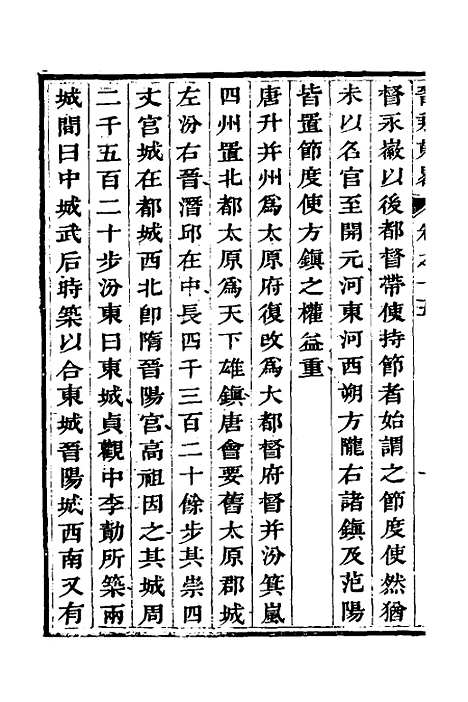 督永徽以後都督帶使持節者始謂之節度使然猶
未以名官至開元河東河西朔方隴右諸鎮及范陽
皆置節度使方鎮之權益重
唐升并州爲太原府復改爲大都督府督并汾箕嵐
四州置北都太原爲天下雄鎮唐會要舊太原郡城
左汾右晉潛邱在中長四千三百二十餘步其崇四
丈宫城在都城西北卽隋晉陽宫高祖因之其城周
二千五百二十步汾東曰東城貞觀中李勣所築兩
城間曰中城武后時築以合東城晉陽城西南又有